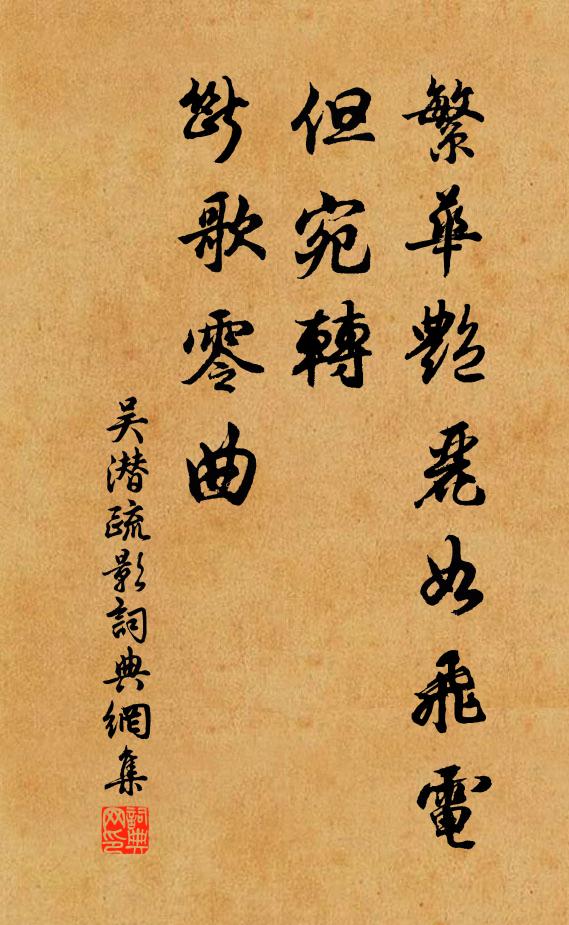 繁華艷麗如飛電
但宛轉
斷歌零曲
吴潛疏影詞典網集
詞典
网印